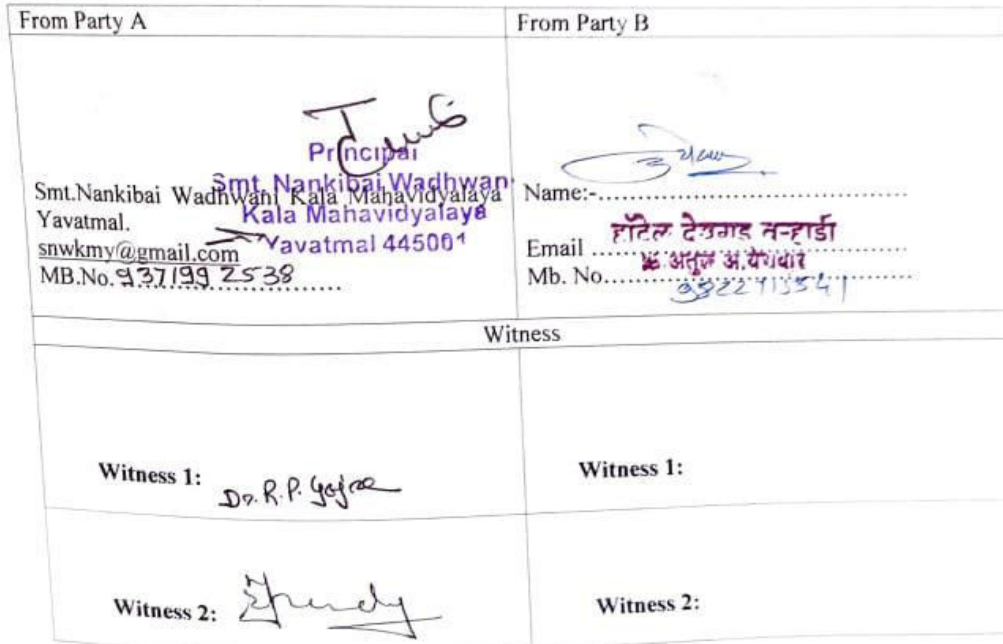 From Party A
From Party B
Principal
Smt. Nankibai Wadhwani
Kala Mahavidyalaya
Yavatmal 445001
Smt.Nankibai Wadhwani Kala Mahavidyalaya
Yavatmal.
snwkmy@gmail.com
MB.No. 9371992538
Name:-
Email
हॉटेल देवगड वऱ्हाडी
Mb. No.
Witness
Witness 1: Dr. R.P.
Witness 1:
Witness 2:
Witness 2: